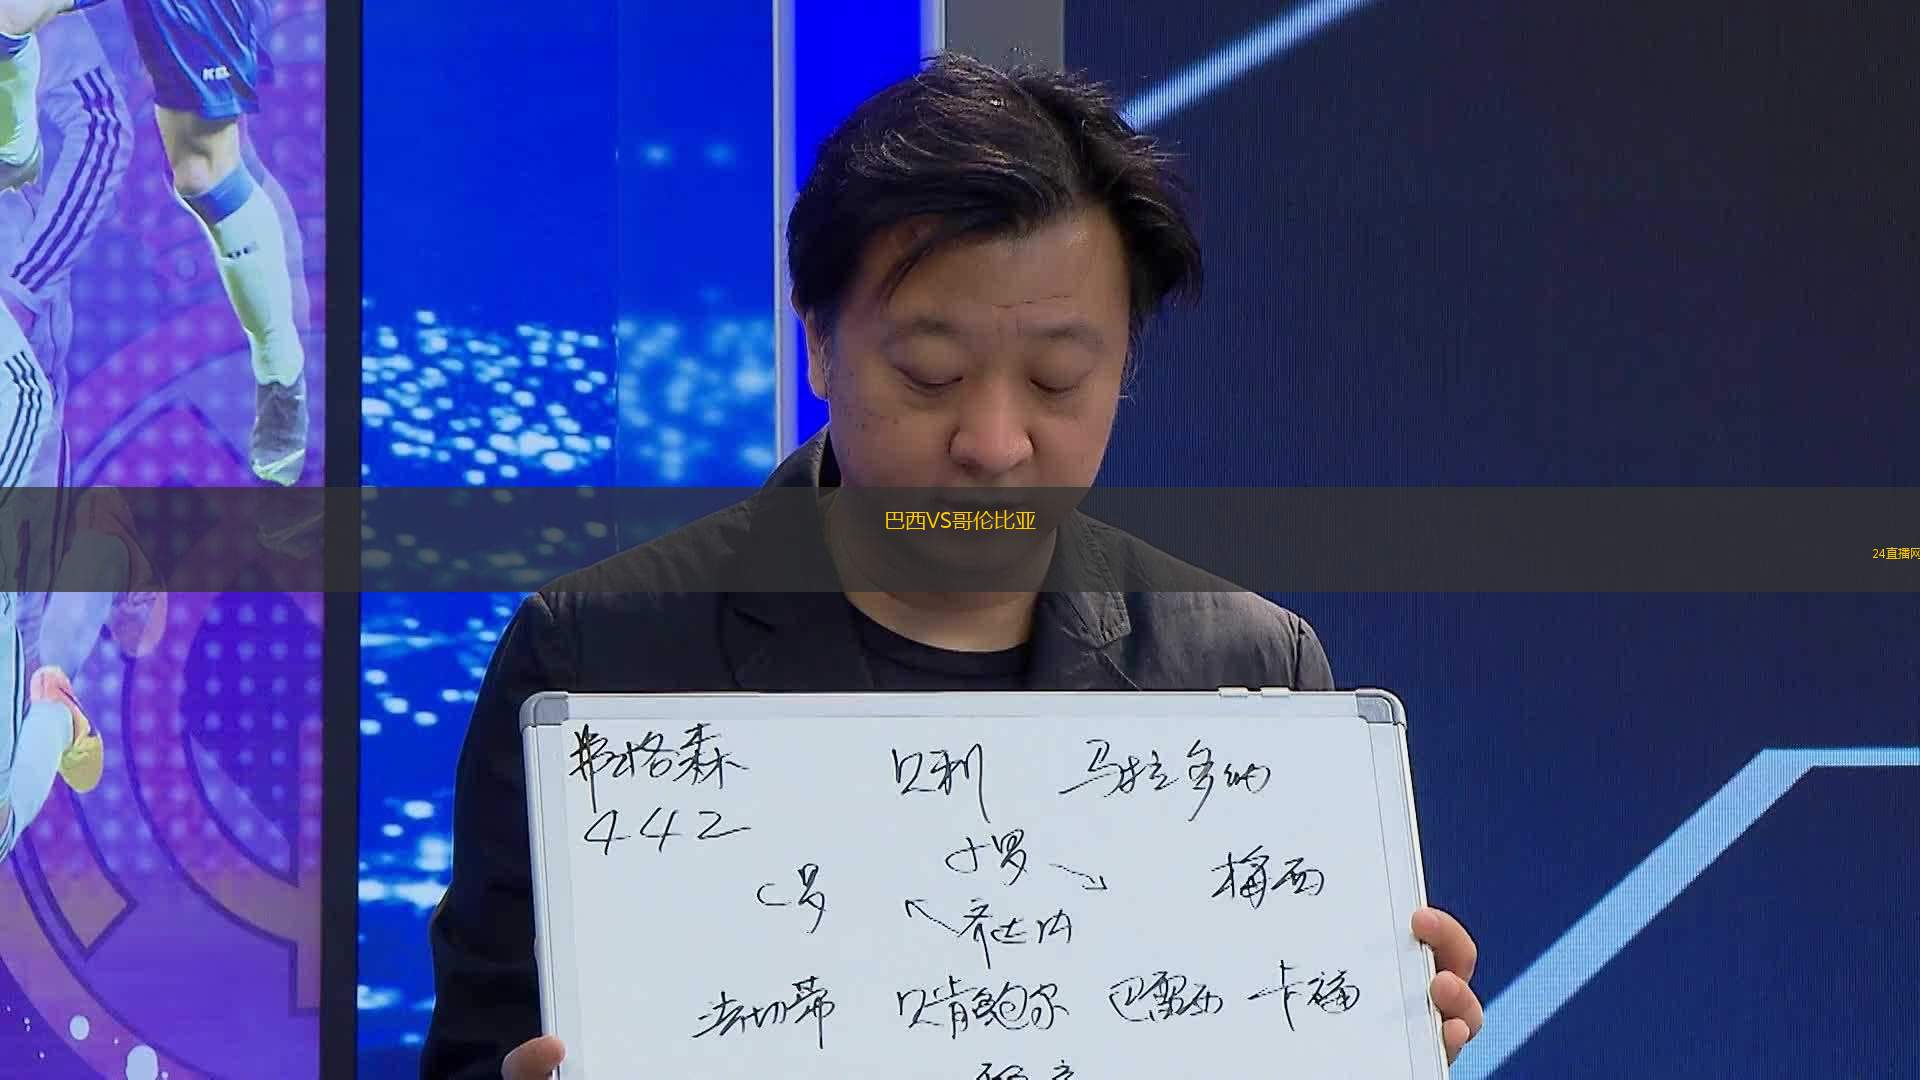 KEL
巴西VS哥伦比亚
24直播网
弗格森 贝利 马拉多纳
442
小罗
C罗 梅西
齐达内
法切蒂 贝肯鲍尔 巴雷西 卡福